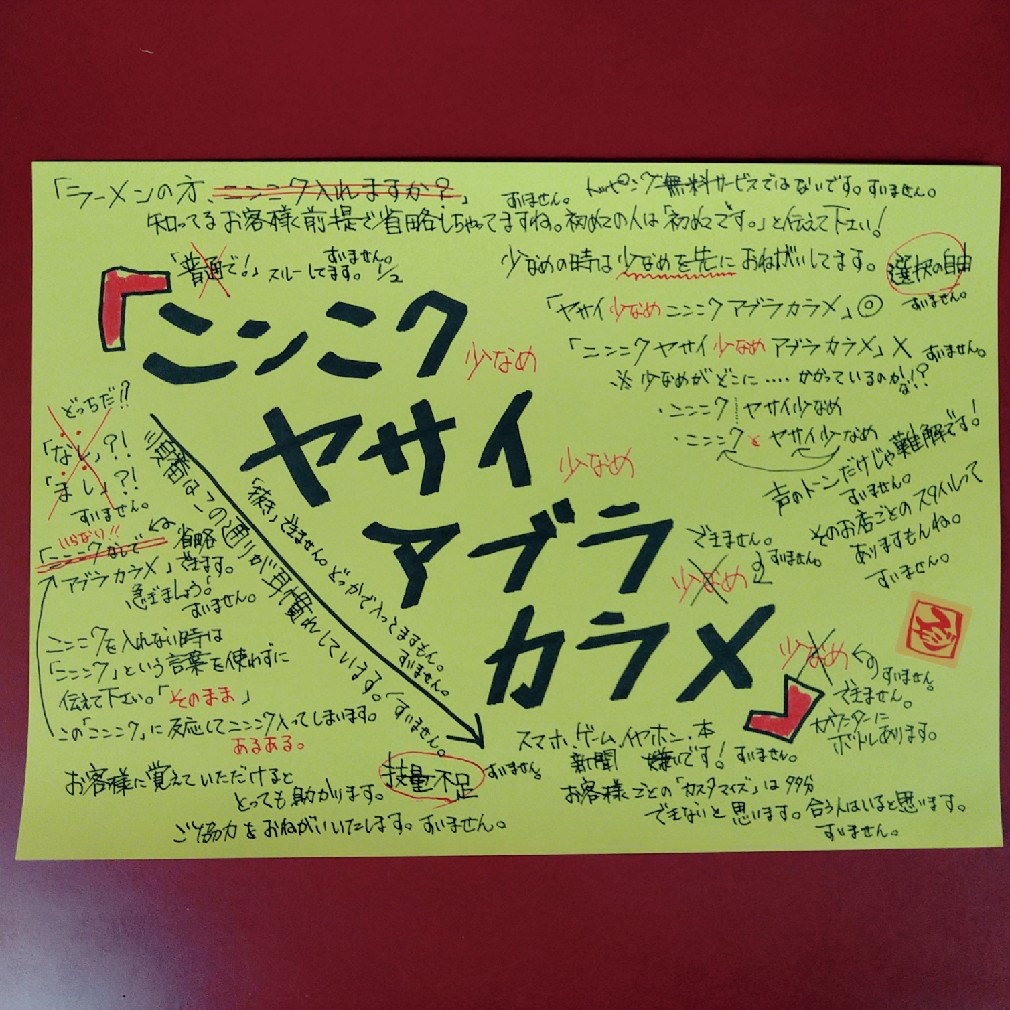 「ラーメンの方、ニンニク入れますか？」
すいません。
トッピング無料サービスではないです。すいません。
知ってるお客様は前提で省略しちゃってますね。初めての人は「初めてです。」と伝えて下さい!
「普通で!」スルーしてます。1/2
すいません。
少なめの時は少なめを先におねがいしてます。
選択の自由
すいません。
「ヤサイ少なめニンニクアブラカラメ」◎
「ニンニクヤサイ少なめアブラカラメ」×
すいません。
※少なめがどこに‥‥かかっているのかな!?
・ニンニク ヤサイ少なめ
・ニンニクとヤサイ少なめ
声のトーンだけじゃ難解です!
すいません。
そのお店ごとのスタイルって
ありますもんね。
すいません。
「ニンニク
少なめ
ヤサイ
少なめ
アブラ
できません。
すいません。
少なめ
カラメ」
少なめ
すいません。
できません。
カウンターに
ボトルあります。
順番はこの通りが耳慣れしています。「すいません。
「抜き」できません。どっかで入っとますもん。
すいません。
どっちだ!!
「なし」?!
「まし」?!
すいません。
いらない!!
「ニンニクなしで
省略
アブラカラメ」できます。
急ぎましょう!
すいません。
ニンニクを入れない時は
「ニンニク」という言葉を使わずに
伝えて下さい。「そのまま」
この「ニンニク」に反応してニンニク入ってしまいます。
あるある。
お客様に覚えていただけると
とっても助かります。
技量不足
すいません。
ご協力をおねがいいたします。すいません。
スマホ、ゲーム、イヤホン、本
新聞 嫌いです! すいません。
お客様ごとの「カスタマイズ」は99%
できないと思います。合う人はいると思います。
すいません。